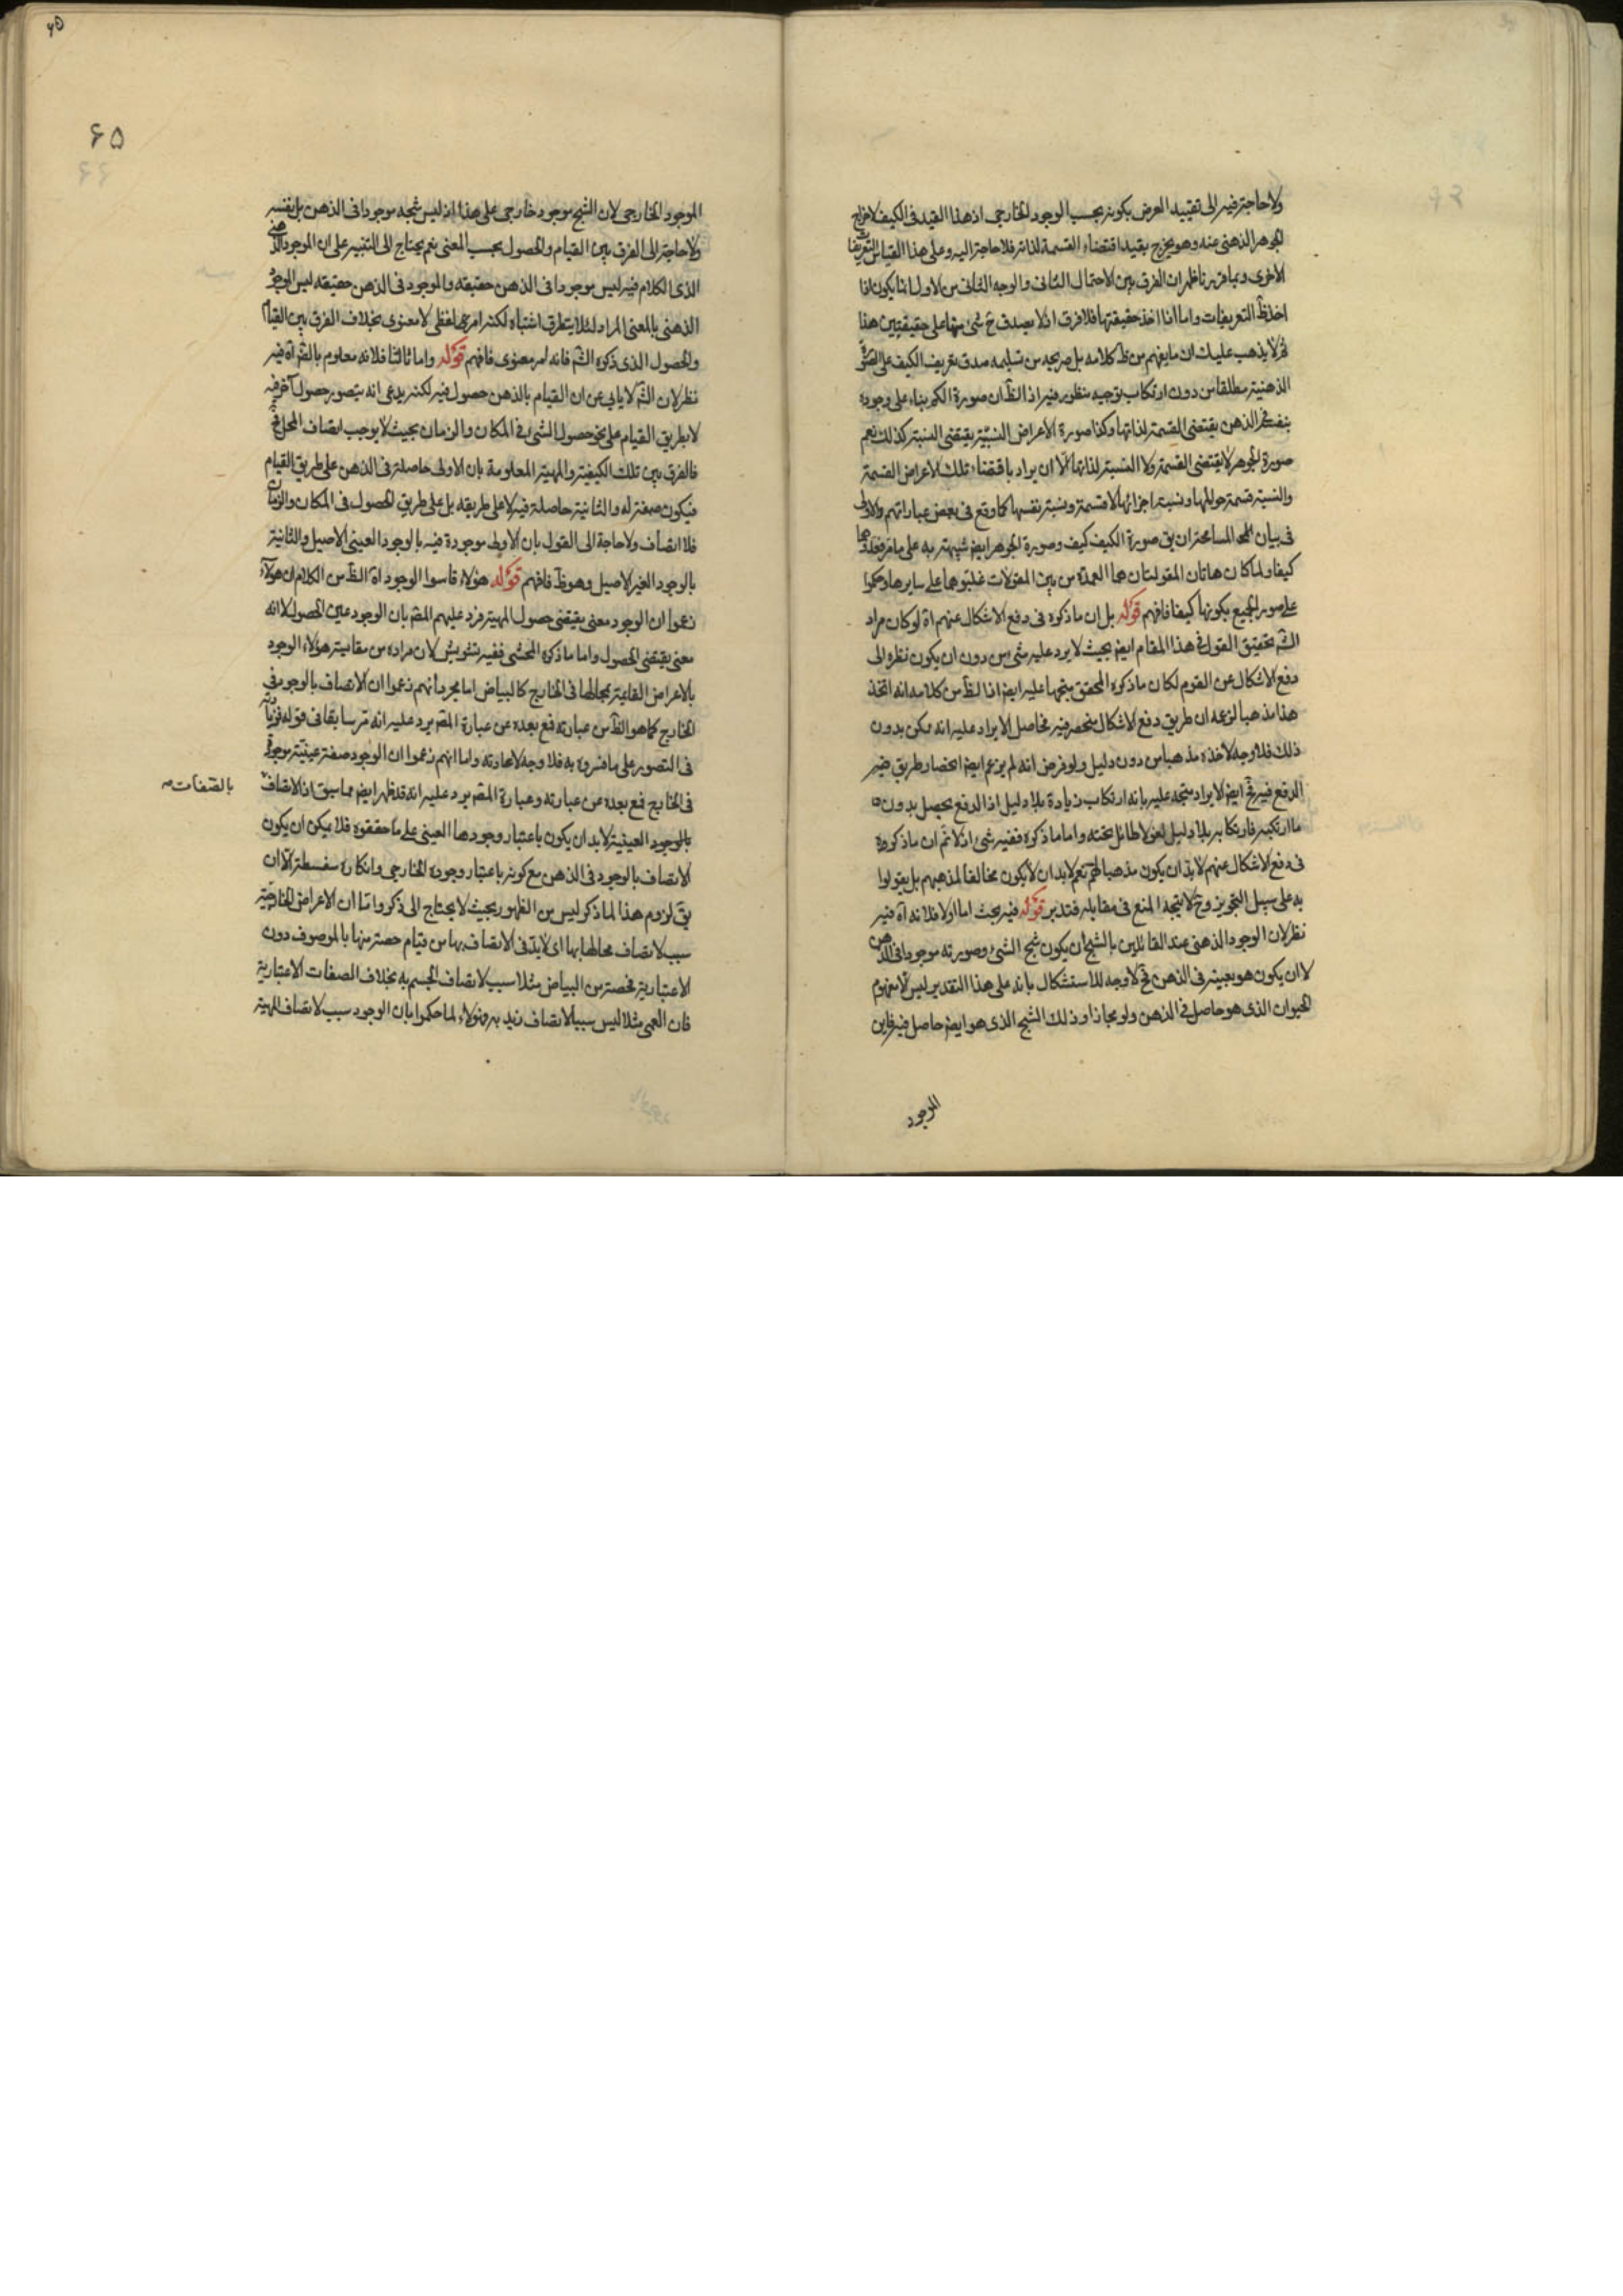 ولا حاجة فيه الى تقييد العرض بكونه بحسب الوجود الخارجي اذ هذا القيد في الكيف لاخراج
الجوهر الذهني عنه وهو يخرج بقيد اقتضاء القسمة لذاته فلا حاجة اليه وعلى هذا القياس التعريفات
الاخرى وبما قررنا ظهر ان الفرق بين الاحتمال الثاني والوجه الثاني من الاول انما يكون اذا
اخذ ظ التعريفات واما اذا اخذ حقيقتها فلا فرق اذ لا يصدق ح شئ منها على حقيقتين هذا
ثم لا يذهب عليك ان ما يفهم من ظ كلامه بل صريحه من تسليمه صدق تعريف الكيف على الصورة
الذهنية مطلقا من دون ارتكاب توجيه منظور فيه اذ الظ ان صورة الكم بناء على وجوده
بنفسه في الذهن يقتضي القسمة لذاتها وكذا صورة الاعراض النسبية يقتضي النسبة كذلك نعم
صورة الجوهر لا يقتضي القسمة ولا النسبة لذاتها الا ان يراد باقتضاء تلك الاعراض القسمة
والنسبة قسمة محالها ونسبة اجزائها لا قسمة ونسبة نفسها كما وقع في بعض عباراتهم والاولى
في بيان المسامحة ان يق صورة الكيف كيف وصورة الجوهر ايض شبيهة به على ما مر فعدوها
كيفا ولما كان هاتان المقولتان هما العمدة من بين المقولات غلبوهما على سايرها وحكموا
على صور الجميع بكونها كيفا فافهم قوله بل ان ما ذكروه في دفع الاشكال عنهم اه لو كان مراد
الش تحقيق القول في هذا المقام ايض بحيث لا يرد عليه شئ من دون ان يكون نظره الى
دفع الاشكال عن القوم لكان ما ذكره المحقق متجها عليه ايض اذ الظ من كلامه انه اتخذ
هذا مذهبا لزعمه ان طريق دفع الاشكال منحصر فيه فحاصل الايراد عليه انه يمكن بدون
ذلك فلا وجه لاخذه مذهبا من دون دليل ولو فرض انه لم يزعم ايض انحصار طريق
الدفع فيه فح ايض الايراد متجه عليه بانه ارتكاب زيادة بلا دليل اذ الدفع يحصل بدون
ما ارتكبه فارتكابه بلا دليل لغو لا طائل تحته واما ما ذكره ففيه شئ اذ لا نم ان ما ذكروه
في دفع الاشكال عنهم لا بد ان يكون مذهبا لهم نعم لا بد ان لا يكون مخالفا لمذهبهم بل يقولوا
به على سبيل التجويز وح لا يتجه المنع في مقابله فتدبر قوله فيه بحث اما اولا فلانه اه فيه
نظر لان الوجود الذهني عند القائلين بالشبح ان يكون شبح الشئ وصورته موجودا في الذهن
لا ان يكون هو بعينه في الذهن فح لا وجه للاستشكال بانه على هذا التقدير ليس الا مفهوم
الحيوان الذي هو حاصل في الذهن ولو مجازا وذلك الشبح الذي هو ايض حاصل فيه فاين
الموجود
۶۵
۶۵
الموجود الخارجي لان الشبح موجود خارجي على هذا اذ ليس شبحه موجودا في الذهن بل نفسه
ولا حاجة الى الفرق بين القيام والحصول بحسب المعنى نعم يحتاج الى التنبيه على ان الموجود الذهني
الذي الكلام فيه ليس موجودا في الذهن حقيقة والموجود في الذهن حقيقة ليس الموجود
الذهني بالمعنى المراد لئلا يتطرق اشتباه لكنه امر لفظي لا معنوى بخلاف الفرق بين القيام
والحصول الذي ذكره الش فانه امر معنوى فافهم قوله واما ثالثا فلانه معلوم بالضرورة اه فيه
نظر لان الش لا يابى عن ان القيام بالذهن حصول فيه لكنه يدعى انه يتصور حصول آخر فيه
لا بطريق القيام على نحو حصول الشئ في المكان والزمان بحيث لا يوجب اتصاف المحل به
فالفرق بين تلك الكيفية والمهية المعلومة بان الاولى حاصلة في الذهن على طريق القيام
فيكون صفة له والثانية حاصلة فيه لا على طريقه بل على طريق الحصول في المكان والزمان
فلا اتصاف ولا حاجة الى القول بان الاولى موجودة فيه بالوجود العيني الاصيل والثانية
بالوجود الغير الاصيل وهو ظ فافهم قوله هؤلاء قاسوا الوجود اه الظ من الكلام ان هؤلاء
زعموا ان الوجود معنى يقتضي حصول المهية فرد عليهم المص بان الوجود عين الحصول لا انه
معنى يقتضي الحصول واما ما ذكره المحشي ففيه تشويش لان مراده من مقايسة هؤلاء الوجود
بالاعراض القاعية بمحالها في الخارج كالبياض اما مجرد انهم زعموا ان الاتصاف بالوجود في
الخارج كما هو الظ من عبارته فمع بعده عن عبارة المص يرد عليه انه مر سابقا في قوله فزيادته
في التصور على ما فسروه به فلا وجه لاعادته واما انهم زعموا ان الوجود صفة عينية موجودة
في الخارج فمع بعده عن عبارته وعبارة المص يرد عليه انه قد ظهر ايض مما سبق اذ الاتصاف
بالصفات صه
بالوجود العينية لا بد ان يكون باعتبار وجودها العيني على ما حققوه فلا يمكن ان يكون
الاتصاف بالوجود في الذهن مع كونه باعتبار وجوده الخارجي وانكاره سفسطة الا ان
يق لزوم هذا لما ذكر ليس من الظهور بحيث لا يحتاج الى ذكره واما ان الاعراض الخارجية
سبب لاتصاف محالها بها اي لا بد في الاتصاف بها من قيام حصة منها بالموصوف دون
الاعتبارية فحصة من البياض مثلا سبب لاتصاف الجسم به بخلاف الصفات الاعتبارية
فان العمى مثلا ليس سببا لاتصاف زيد به وهؤلاء لما حكموا بان الوجود سبب لاتصاف المهية